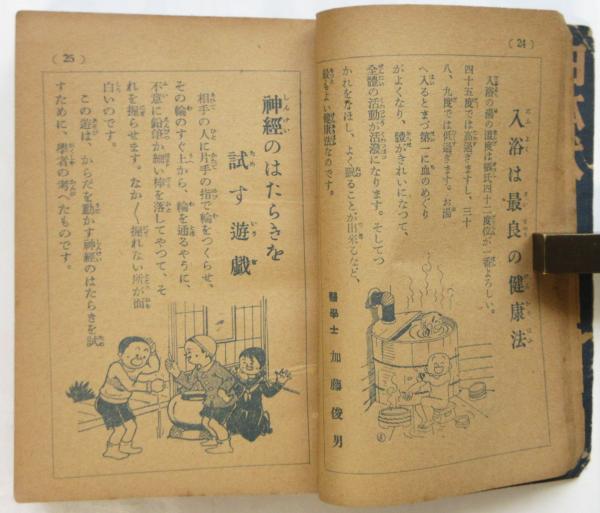 ( 24 )
入浴は最良の健康法
入浴の湯の温度は攝氏四十二度位が一番よろしい。
四十五度では高過ぎますし、三十
八、九度では低過ぎます。お湯
へ入るとまづ第一に血のめぐり
がよくなり、膚がきれいになつて、
全體の活動が活潑になります。そしてつ
かれをなほし、よく眠ることが出來るなど、
最もよい健康法なのです。
醫學士 加藤俊男
( 25 )
神經のはたらきを
試す遊戯
相手の人に片手の指で輪をつくらせ、
その輪のすぐ上から、輪を通るやうに、
不意に鉛筆か細い棒を落してやつて、そ
れを握らせます。なか〱握れない所が面
白いのです。
この遊は、からだを動かす神經のはたらきを試
すために、學者の考へたものです。